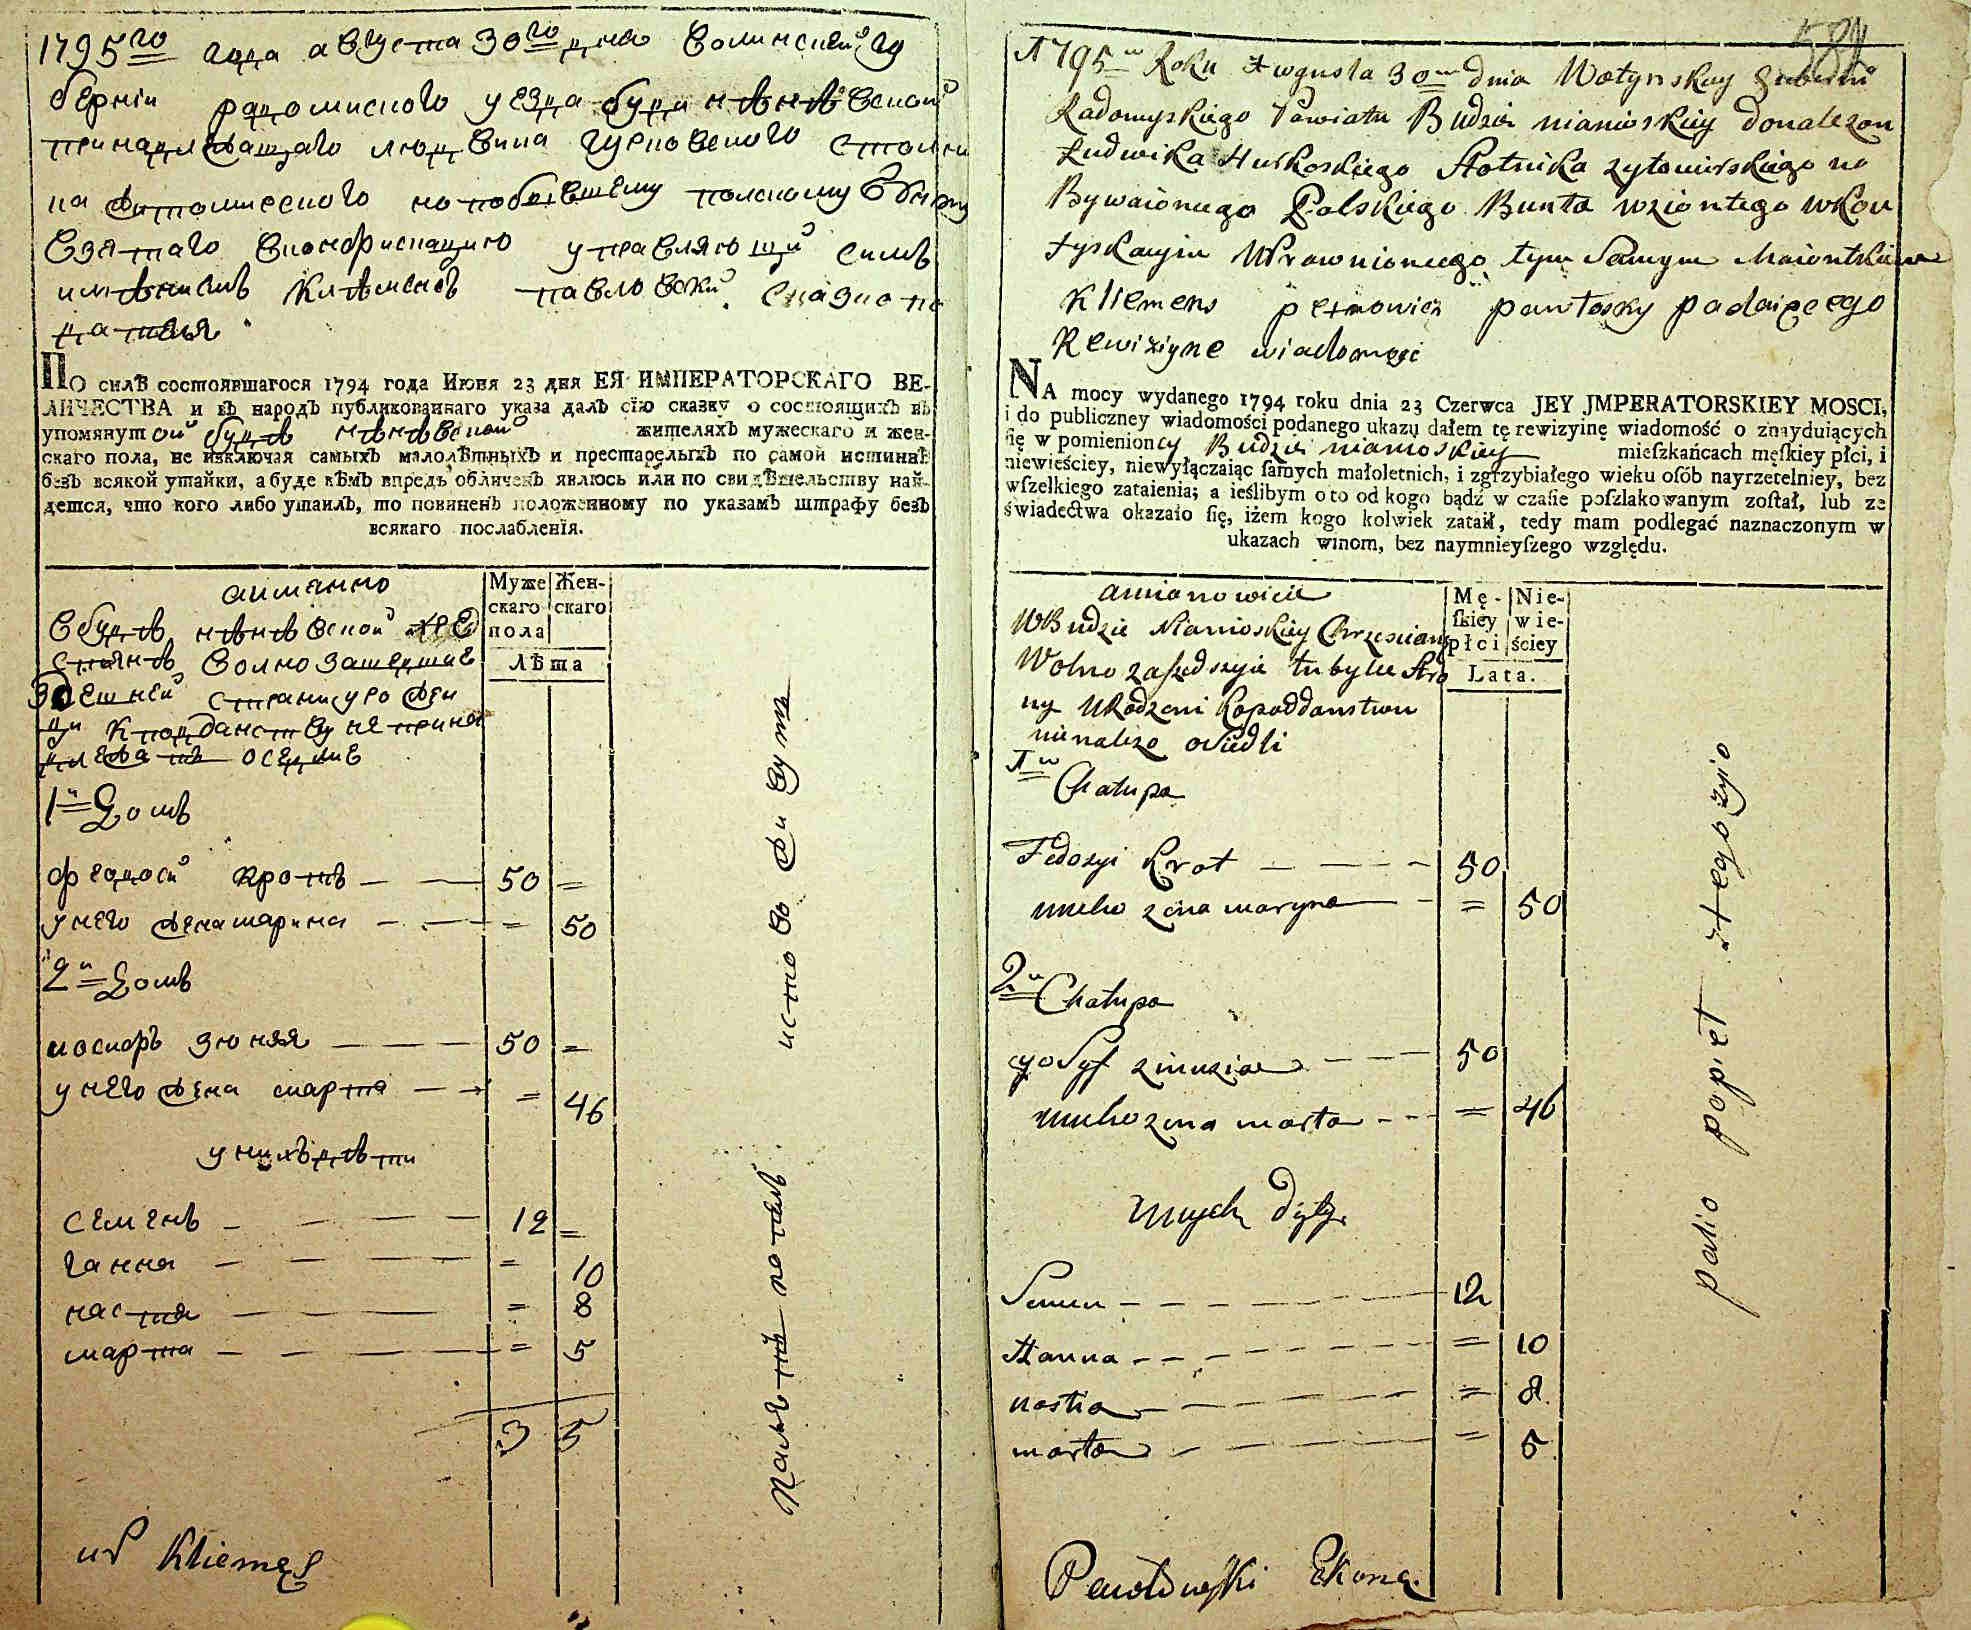 1795го года августа 30го дня Волинской гу
берніи радомиского уезда буди нѣнѣвской
принадлѣжащаго людвика гурковского столни
ка житомирского по бывшему полскому бунту
взятаго вконфискацию управляющий симъ
имѣниемъ Клѣменсъ павловский сказкопо
датель
ПО силѣ состоявшагося 1794 года Июня 23 дня ЕЯ ИМПЕРАТОРСКАГО ВЕ-
ЛИЧЕСТВА и въ народъ публикованнаго указа далъ сїю сказку о состоящихъ въ
упомянутой будѣ нѣнѣвской жителяхъ мужескаго и жен-
скаго пола, не изключая самыхъ малолѣтныхъ и престарелыхъ по самой истиннѣ
безъ всякой утайки, а буде кѣмъ впредь обличенъ явлюсь или по свидѣтельству най-
дется, что кого либо утаилъ, то повиненъ положенному по указамъ штрафу безъ
всякаго послабленїя.
аименно
Муже Жен-
скаго скаго
пола
Лѣта
Вбудѣ нѣнѣвской хре
стянѣ волно зашедшие
Здешней страни урожен
ци кподданству не прина
длежатъ оседлие
1й Домъ
Федосий кротъ — — 50 =
унего жена марина — — = 50
2й Домъ
иосифъ зюзя — — — 50 =
унего жена марта — — = 46
унихъ дѣти
семенъ — — — — 12 =
ганна — — — — = 10
настя — — — — = 8
марта — — — — = 5
3 5
Klemes
1795го Roku Awgusta 30го dnia Wołynskey Guberni
Radomyskiego Powiatu Budzie nianioskiey donalezon
Ludwika Hurkoskiego Stolnika zytomirskiego no
Bywaionego Polskiego Bunta wziontego wkon
fyskacyiu Uprawnionego tym Samym Maiontkiem
Kllemens petrowicz pawłosky padaiącego
Rewizyine wiadomość
NA mocy wydanego 1794 roku dnia 23 Czerwca JEY JMPERATORSKIEY MOSCI,
i do publiczney wiadomości podanego ukazu dałem tę rewizyinę wiadomość o znayduiących
się w pomienioncy Budzie nianioskiey mieſzkańcach męſkiey płci, i
niewieściey, niewyłączaiąc ſamych małoletnich, i zgrzybiałego wieku oſób nayrzetelniey, bez
wſzelkiego zataienia; a ieślibym o to od kogo bądź w czaſie poſzlakowanym zoſtał, lub ze
świadectwa okazało ſię, iżem kogo kolwiek zataił, tedy mam podlegać naznaczonym w
ukazach winom, bez naymnieyſzego względu.
amianowicie
Mę- Nie-
ſkiey wie-
płci ściey
Lata.
WBudzie Nianioskiey Chrzesciany
Wolno zaszedszyie tubylce Stro
ny Urodzeni kopoddanstwu
nienalizo osiedli
1w Chatupa
Fedosyi Krot — — — 50
unieho zona maryna — — = 50
2w Chatupa
yosyf zmuzia — — — 50
unieho zona marta — — = 46
Unych Dyty
Semen — — — — 12
Hanna — — — — = 10
nastia — — — — = 8
marta — — — — = 5
Pawłowski Ekono.